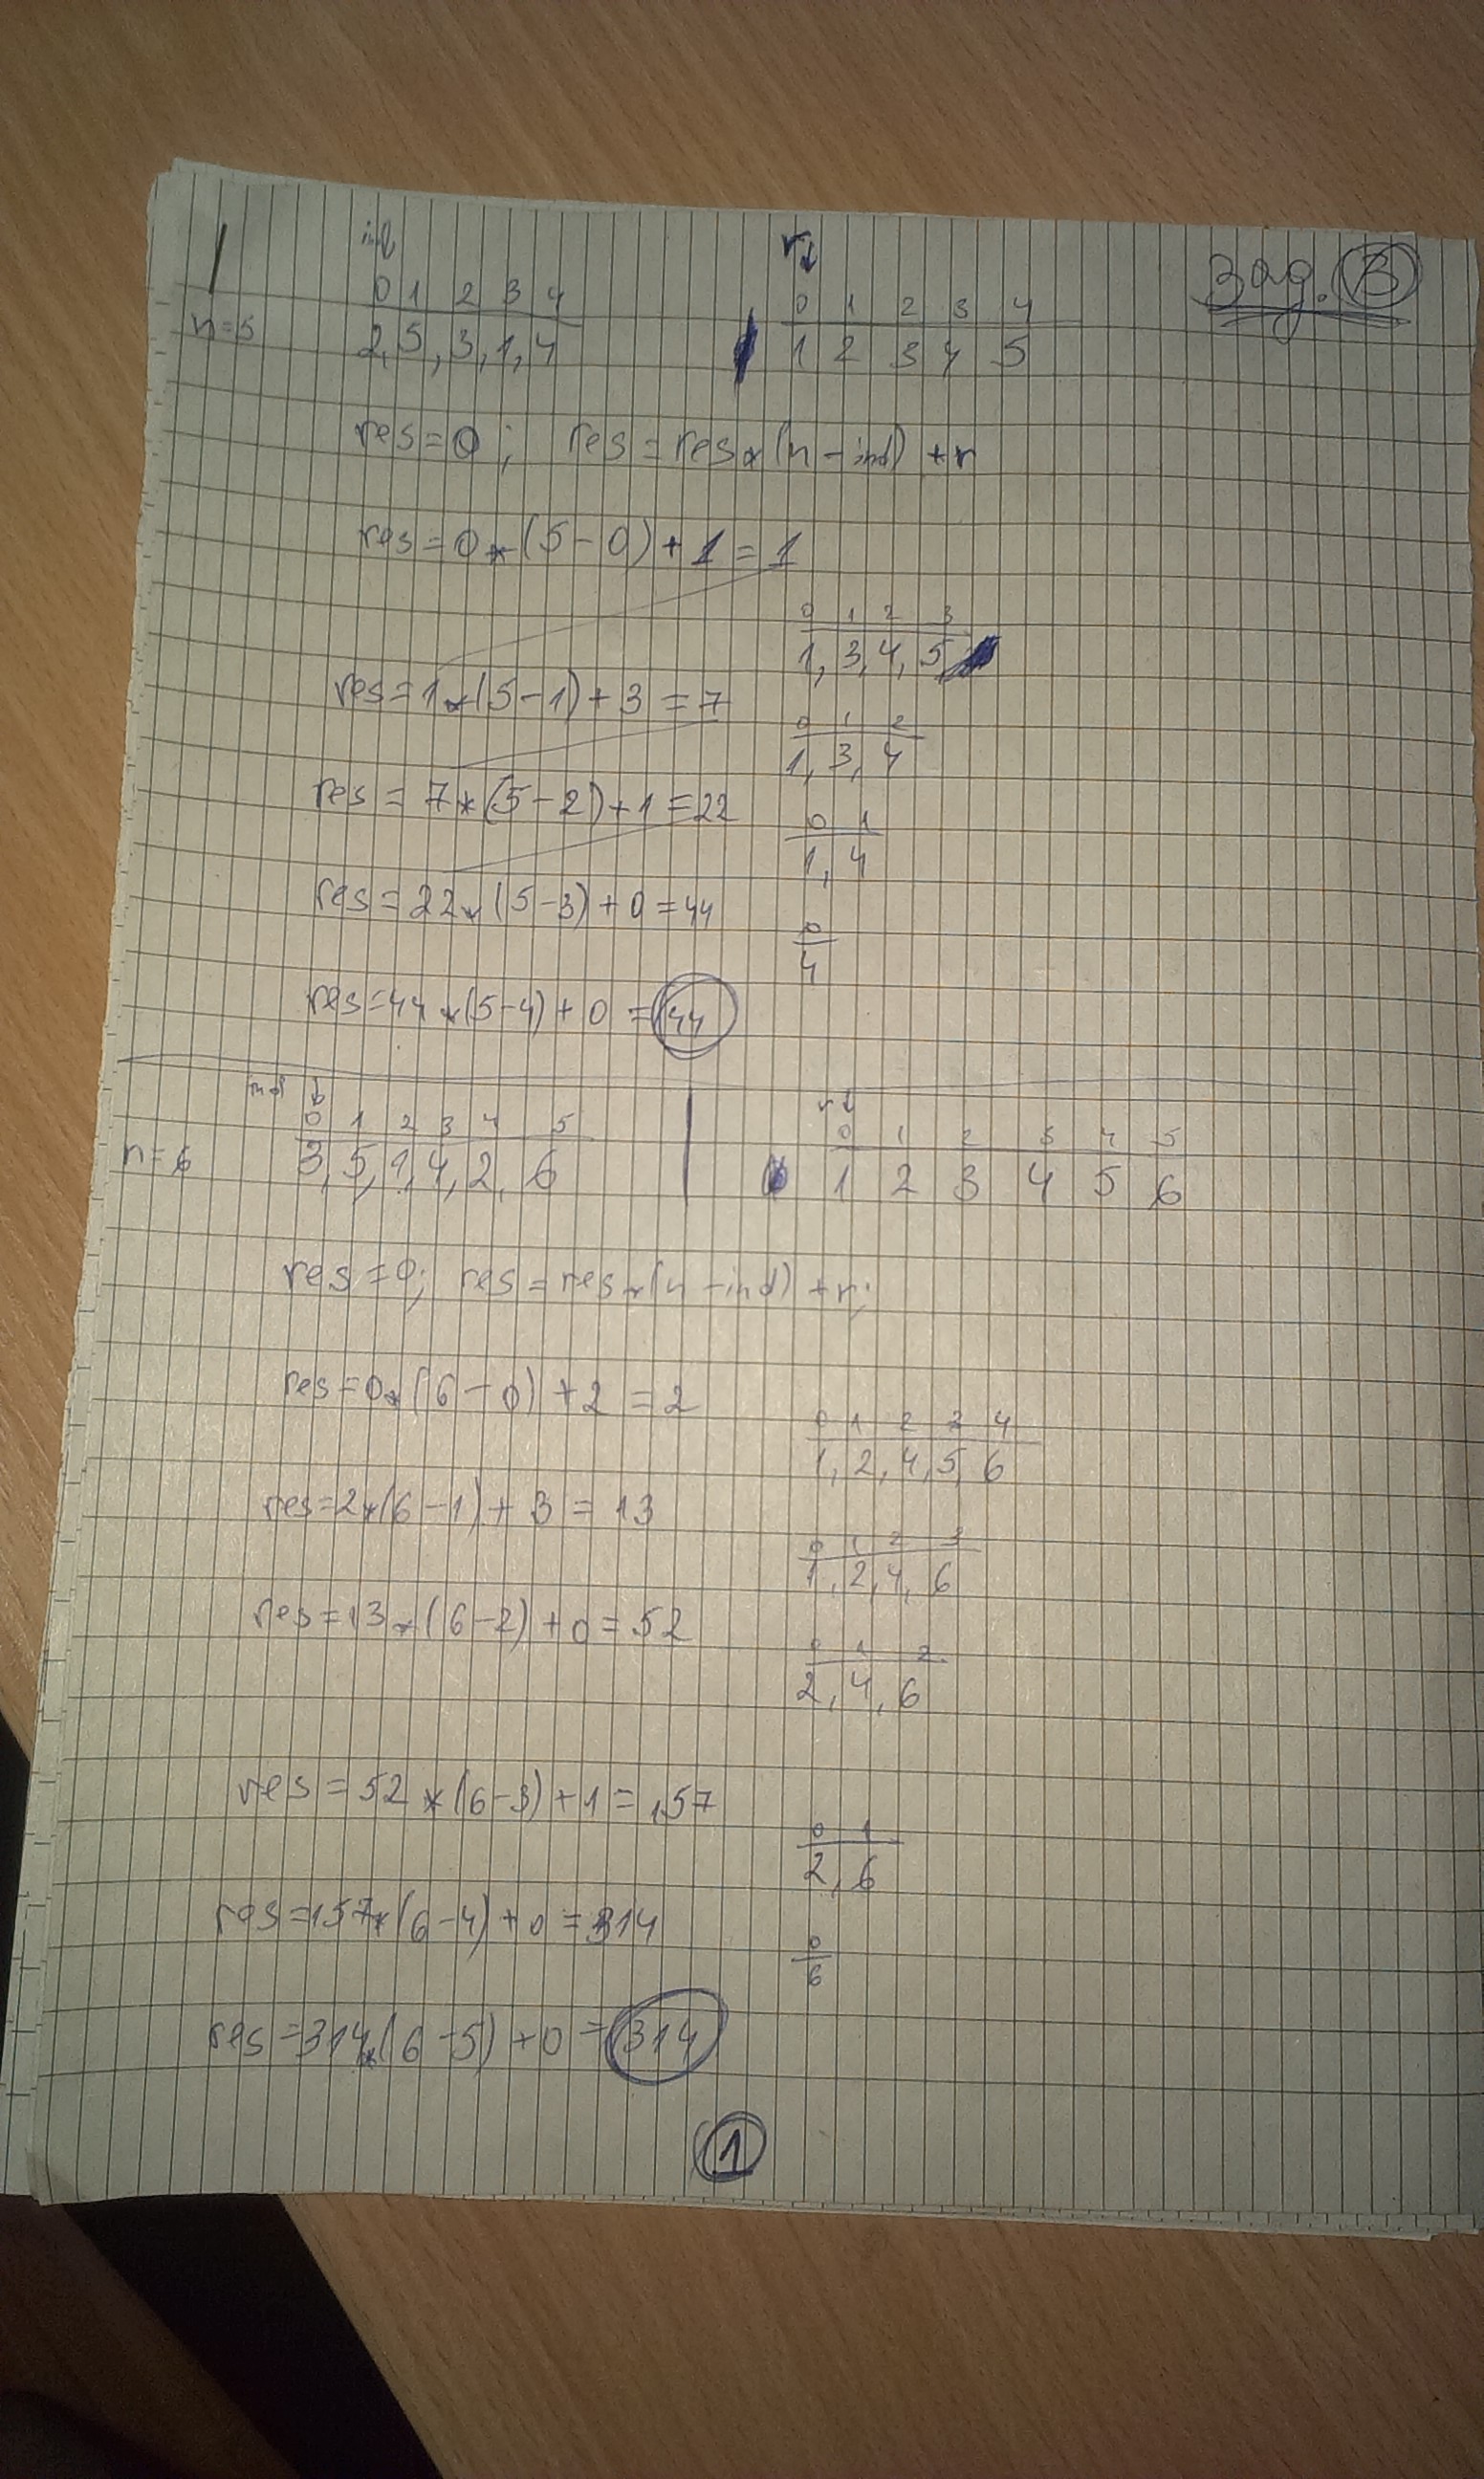 Зад. B
ind
r↓
0 1 2 3 4
0 1 2 3 4
n=5 2, 5, 3, 1, 4
1 2 3 4 5
res=0; res=res*(n-ind)+r
res=0*(5-0)+1=1
0 1 2 3
1, 3, 4, 5
res=1*(5-1)+3=7
0 1 2
1, 3, 4
res=7*(5-2)+1=22
0 1
1, 4
res=22*(5-3)+0=44
0
4
res=44*(5-4)+0=44
ind ↓
r↓
0 1 2 3 4 5
0 1 2 3 4 5
n=6 3, 5, 1, 4, 2, 6
1 2 3 4 5 6
res=0; res=res*(n-ind)+r;
res=0*(6-0)+2=2
0 1 2 3 4
1, 2, 4, 5 6
res=2*(6-1)+3=13
0 1 2 3
1, 2, 4, 6
res=13*(6-2)+0=52
0 1 2
2, 4, 6
res=52*(6-3)+1=157
0 1
2, 6
res=157*(6-4)+0=314
0
6
res=314*(6-5)+0=314
1